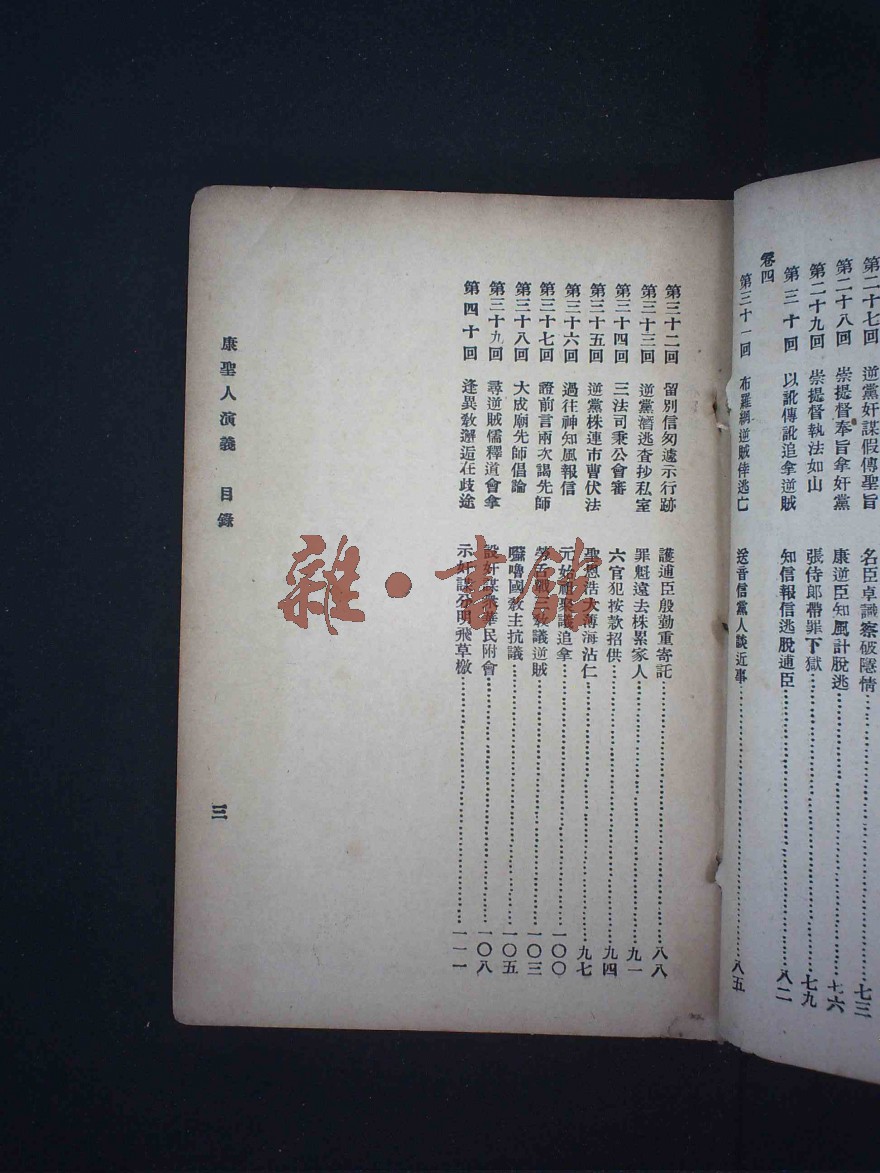 第二十七回 逆黨奸謀假傳聖旨 名臣卓識察破隱情……七三
第二十八回 崇提督奉旨拿奸黨 康逆臣知風計脫逃……七六
第二十九回 崇提督執法如山 張侍郎帶罪下獄……七九
第三十回 以訛傳訛追拿逆賊 知信報信逃脫逋臣……八二
卷四
第三十一回 布羅網逆賊倖逃亡 送音信黨人談近事……八五
第三十二回 留別信匆遽示行跡 護逋臣殷勤重寄託……八八
第三十三回 逆黨潛逃查抄私室 罪魁遠去株累家人……九一
第三十四回 三法司秉公會審 六官犯按款招供……九四
第三十五回 逆黨株連市曹伏法 聖恩浩大薄海沾仁……九七
第三十六回 過往神知風報信 元始祖聚議追拿……一〇〇
第三十七回 證前言兩次謁先師 勞舌 三教議逆賊……一〇三
第三十八回 大成廟先師倡論 嚕國教主抗議……一〇五
第三十九回 尋逆賊儒釋道會拿 設奸謀 華民附會……一〇八
第四十回 逢異教邂逅在歧途 示奸謀分明飛草檄……一一一
康聖人演義 目錄
三
雜·書館